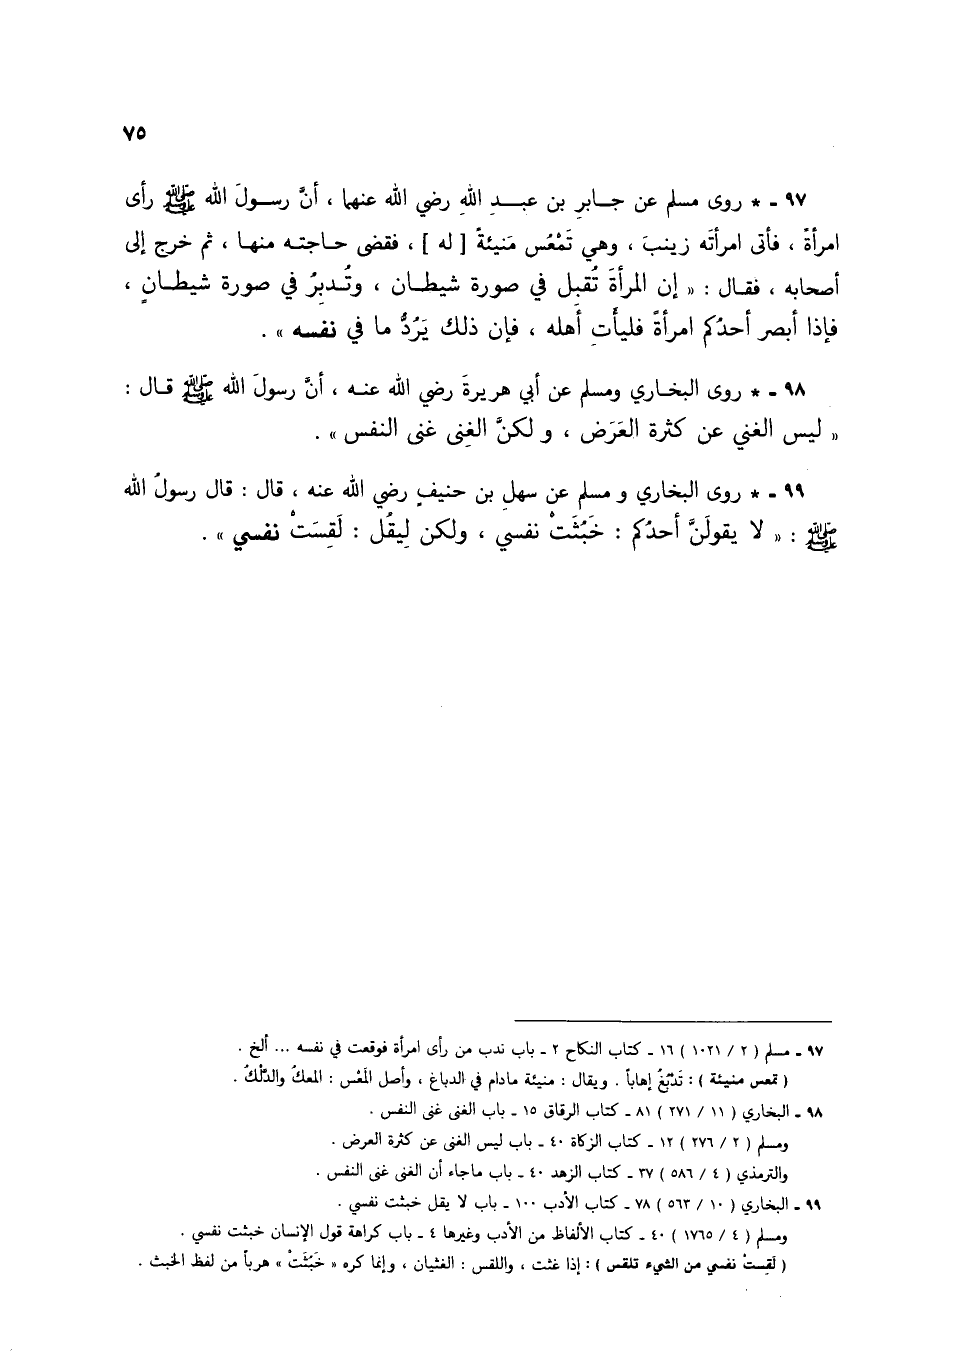 ٧٥
٩٧ ـ * روى مسلم عن جـابرِ بن عبـدِ اللهِ رضي الله عنهما ، أنَّ رسـولَ الله ﷺ رأى
امرأةً ، فأتى امرأتَه زينبَ ، وهي تَمْعُس مَنيئةً [ له ] ، فقضى حـاجتـه منهـا ، ثم خرج إلى
أصحابه ، فقـال : « إن المرأةَ تُقبِل في صورة شيطـان ، وتُـدبِرُ في صورة شيطـانٍ ،
فإذا أبصر أحدُكم امرأةً فليأتِ أهله ، فإن ذلك يَرُدُّ ما في نفسه » .
٩٨ ـ * روى البخاري ومسلم عن أبي هريرةَ رضي الله عنـه ، أنَّ رسولَ الله ﷺ قـال :
« ليس الغني عن كثرة العَرَض ، و لكنَّ الغِنى غنى النفس » .
٩٩ ـ * روى البخاري و مسلم عن سهلِ بن حنيفٍ رضي الله عنه ، قال : قال رسولُ الله
ﷺ : « لا يقولَنَّ أحدُكم : خَبُثَتْ نفسي ، ولكن لِيقُل : لَقِسَتْ نفسي » .
٩٧ ـ مسلم ( ٢ / ١٠٢١ ) ١٦ ـ كتاب النكاح ٢ ـ باب ندب من رأى امرأة فوقعت في نفسه ... ألخ .
( تمعس منيئة ) : تَدْبُغُ إهاباً . ويقال : منيئة مادام في الدباغ ، وأصل المَعْس : المعكُ والدَّلْكُ .
٩٨ ـ البخاري ( ١١ / ٢٧١ ) ٨١ ـ كتاب الرقاق ١٥ ـ باب الغنى غنى النفس .
ومسلم ( ٢ / ٢٧٦ ) ١٢ ـ كتاب الزكاة ٤٠ ـ باب ليس الغنى عن كثرة العرض .
والترمذي ( ٤ / ٥٨٦ ) ٣٧ ـ كتاب الزهد ٤٠ ـ باب ماجاء أن الغنى غنى النفس .
٩٩ ـ البخاري ( ١٠ / ٥٦٣ ) ٧٨ ـ كتاب الأدب ١٠٠ ـ باب لا يقل خبثت نفسي .
ومسلم ( ٤ / ١٧٦٥ ) ٤٠ ـ كتاب الألفاظ من الأدب وغيرها ٤ ـ باب كراهة قول الإنسان خبثت نفسي .
( لَقِستْ نفسي من الشيء تلقس ) : إذا غثت ، واللقس : الغثيان ، وإنما كره « خَبُثَتْ » هرباً من لفظ الخبث .